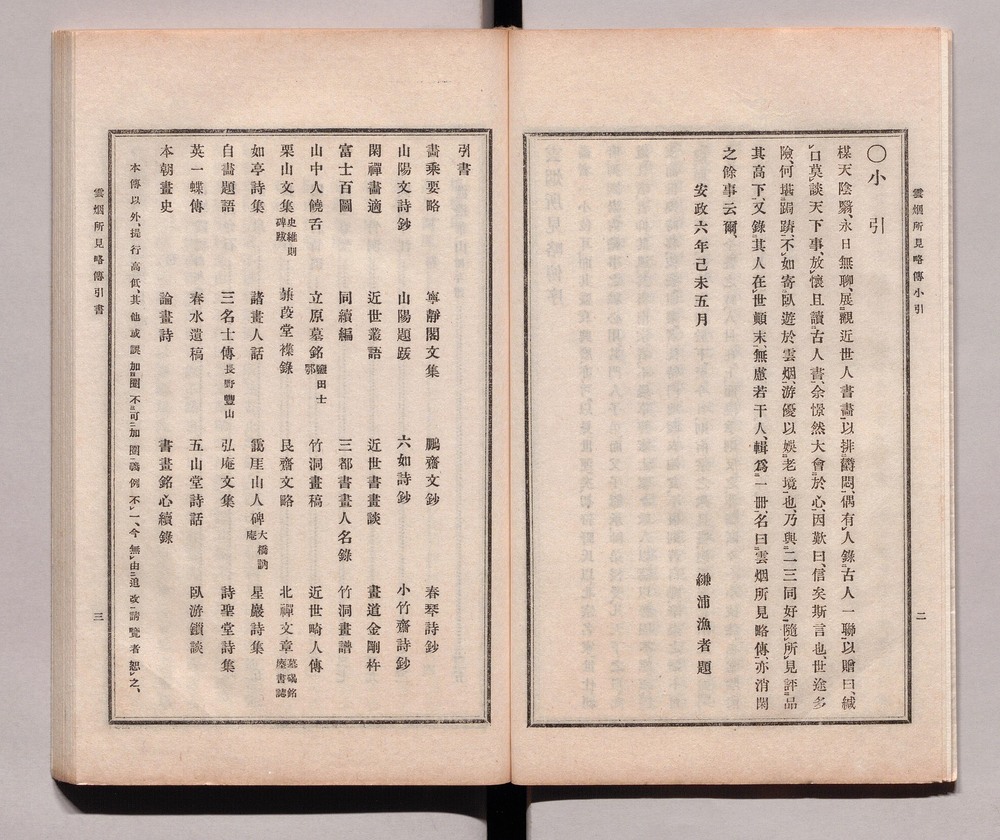 雲烟所見略傳小引
二
〇小引
楳天陰翳、永日無聊、展觀近世人書畵、以排欝悶、偶有人錄古人一聯、以贈曰、緘
口莫談天下事、放懷且讀古人書、余憬然大會於心、因歎曰、信矣斯言也、世途多
險、何堪跼蹐、不如寄臥遊於雲烟、游優以娛老境也、乃與二三同好、隨所見評品
其高下、又錄其人在世顚末、無慮若干人、輯爲一册、名曰雲烟所見略傳、亦消閑
之餘事云爾、
安政六年己未五月
漁者題
引書
畵乘要略 寧靜閣文集 鵬齋文鈔 春琴詩鈔
山陽文詩鈔 山陽題跋 六如詩鈔 小竹齋詩鈔
閑禪畵適 近世叢語 近世書畫談 畫道金剛杵
富士百圖 同續編 三都書畫人名錄 竹洞畫譜
山中人饒舌 立原墓銘 竹洞畫稿 近世畸人傳
栗山文集史維則碑跋 蘐段堂襍錄 艮齋文略 北禪文章墓碣銘塵書誌
如亭詩集 諸畫人話 靄厓山人碑大橋訥庵 星巖詩集
自畵題語 三名士傳長野豐山 弘庵文集 詩聖堂詩集
英一蝶傳 春水遺稿 五山堂詩話 臥游鎖談
本朝畫史 論畫詩 書畫銘心續錄
本傳以外、提行高低其他或誤加圈、不可加圈、譌例不一、今無由追改、請覽者恕之、
雲烟所見略傳引書
三